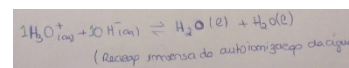 1H₃O⁺(aq) + 1OH⁻(aq) ⇌ H₂O(l) + H₂O(l)
(Reação inversa do autoionização da água